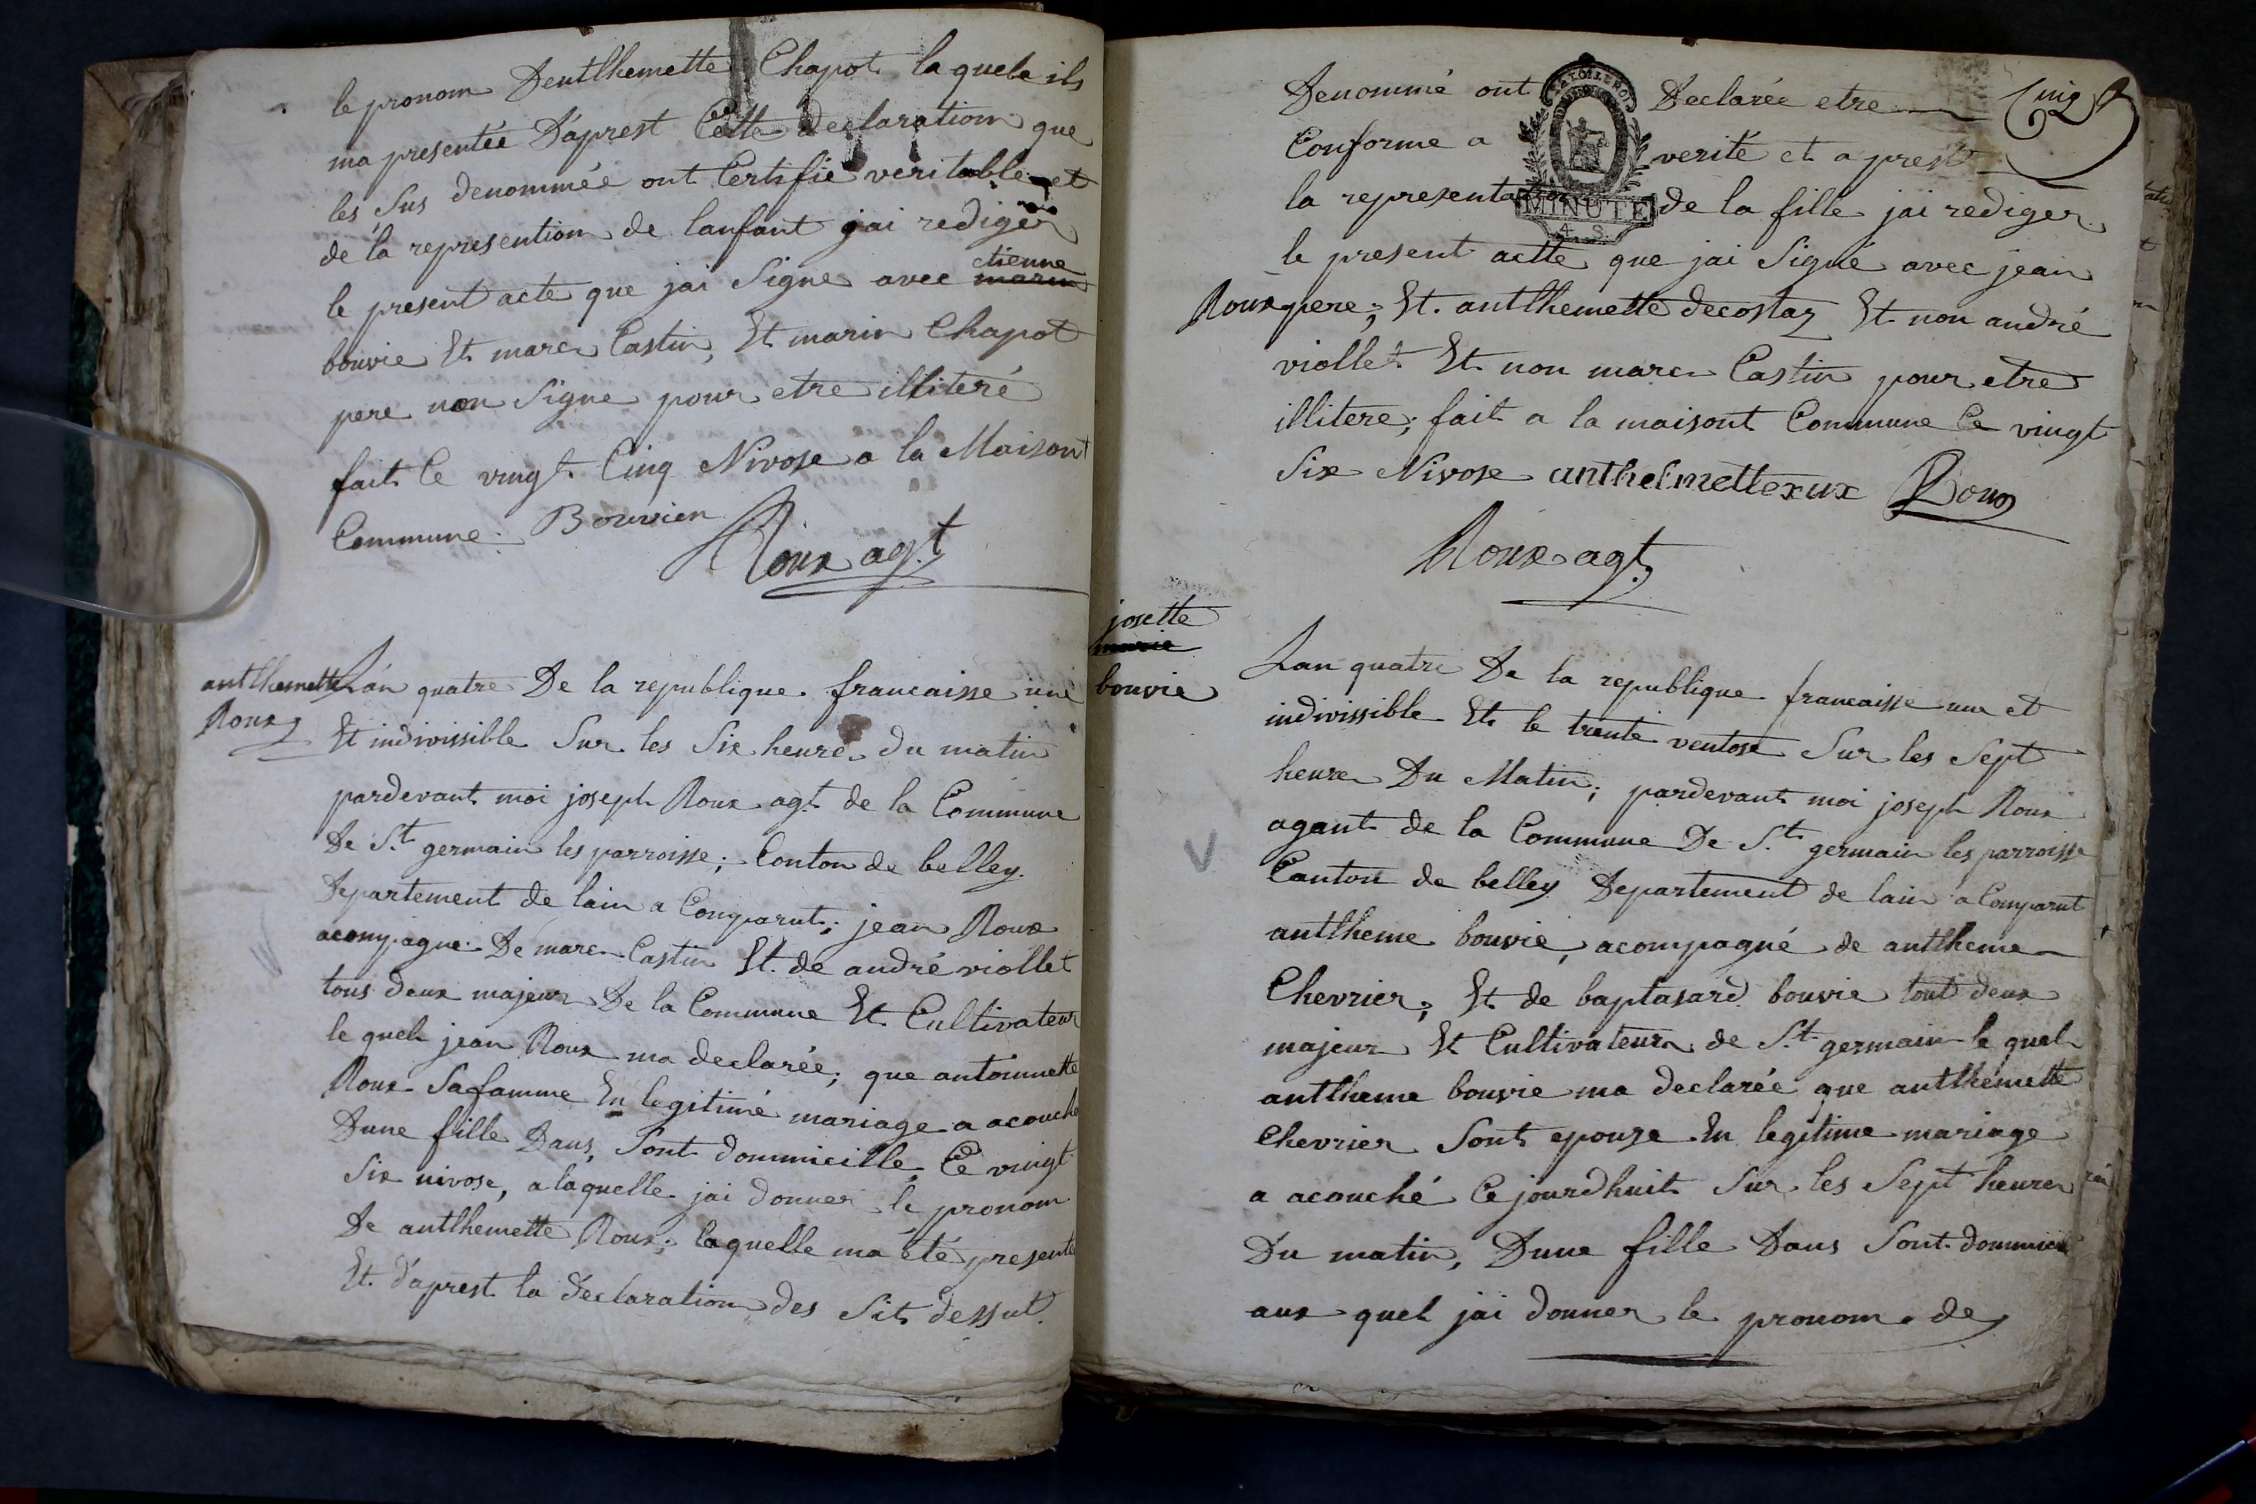 le pronom Dentlhemette Chapot la quele ils
ma presentée D'aprest Cette declaration que
les Sus denommée ont Certifié veritable et
de la represention de lanfant jai rediger
etienne
le present acte que jai Signe avec marin
bouvie Et marc Castin, Et marin Chapot
pere non Signe pour etre illiteré
fait le vingt Cinq Nivose a la Maisont
Commune. Bouvier
Roux agt
antlhemette
Roux
Lán quatre De la republique francaisse une
Et indivissible Sur les Six heure du matin
pardevant moi joseph Roux agt de la Commune
De St germain les parroisse; Conton de belley.
Departement de lain a Comparut; jean Roux
acompagne De marc Castin Et de andré viollet
tous deux majeur De la Commune Et Cultivateur
le quel jean Roux ma declarée; que antoinnette
Roux Safamme En legitimé mariage a acouche
Dune fille Dans, Sont dommicille Ce vingt
Six nivose, a laquelle jai donner le pronom
De antlhemette Roux; laquelle ma été presente
Et d'aprest la declaration des Sit dessut.
Cinq
Denommé ont Declarée etre
Conforme a verité et aprest
la representation de la fille jai rediger
MINUTE
4. S.
le present actte que jai Signé avec jean
Roux pere; Et antlhemette decostaz Et non andré
viollet Et non marc Castin pour etre
illitere; fait a la maisont Commune Ce vingt
Six Nivose anthelmettexux Roux
Roux agt
josette
marie
bouvie
Lan quatre De la republique francaisse une et
indivissible Et le trente ventose Sur les Sept
heure Du Matin; pardevant moi joseph Roux
agant de la Commune De St germain les parroisse
Canton de belley Departement de lain a Comparut
antlheme bouvie, acompagné de antlheme
Chevrier; Et de baptasard bouvie tout deux
majeur Et Cultivateur de St germain le quel
antlheme bouvie ma declarée que antlhemette
Chevrier Sont epouze En legitime mariage
a acouché Ce jourdhuit Sur les Sept heure
Du matin, Dune fille Dans Sont dommici
aux quel jai donner le pronom de